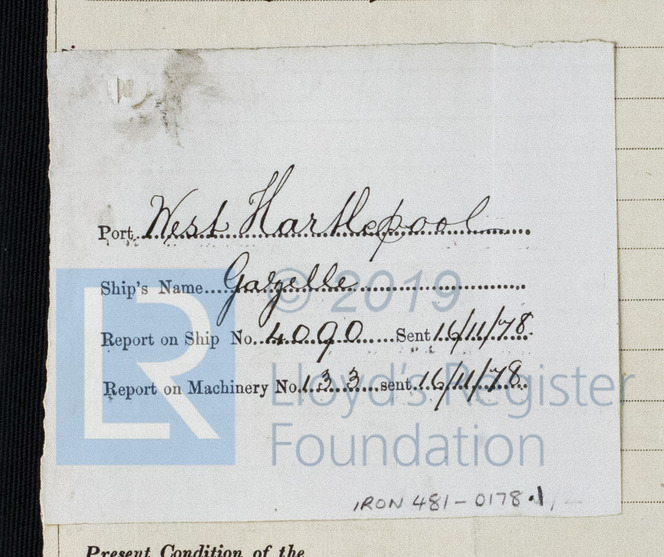 Port West Hartlepool
Ship's Name Gazelle
© 2019
Report on Ship No. 4090 Sent 16/11/78.
Report on Machinery No. 133 sent 16/11/78.
LR
Lloyd's Register
Foundation
IRON 481-0178.1/-
Present Condition of the